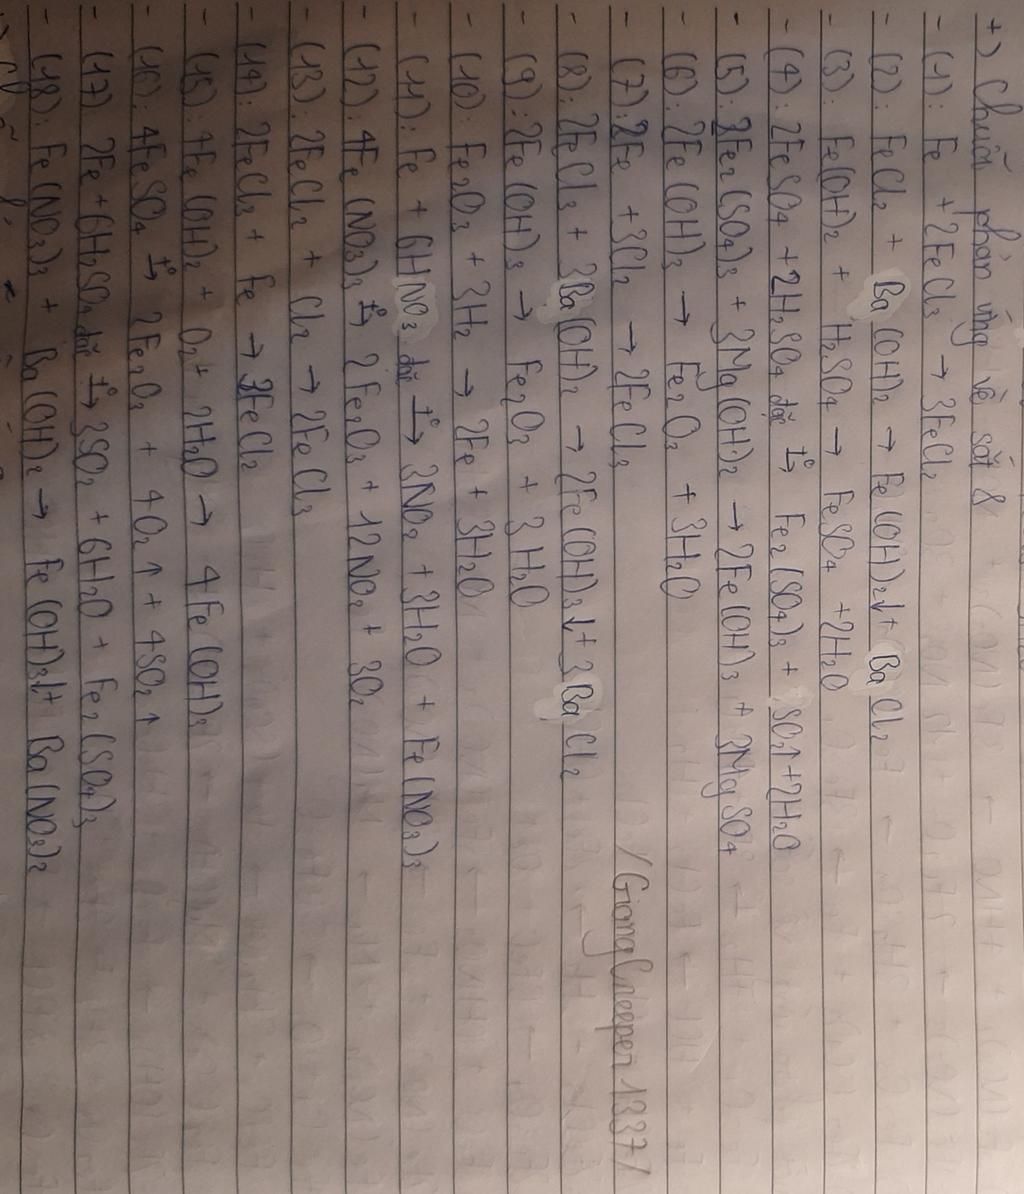 +) Chuỗi phản ứng về sắt 8
- (1): Fe + 2FeCl3 → 3FeCl2
- (2): FeCl2 + Ba(OH)2 → Fe(OH)2↓ + BaCl2
- (3): Fe(OH)2 + H2SO4 → FeSO4 + 2H2O
- (4): 2FeSO4 + 2H2SO4 đặc t°→ Fe2(SO4)3 + SO2↑ + 2H2O
- (5): Fe2(SO4)3 + 3Mg(OH)2 → 2Fe(OH)3 + 3MgSO4
- (6): 2Fe(OH)3 → Fe2O3 + 3H2O
- (7): 2Fe + 3Cl2 → 2FeCl3
/GiangCreeper1337/
- (8): 2FeCl3 + 3Ba(OH)2 → 2Fe(OH)3↓ + 3BaCl2
- (9): 2Fe(OH)3 → Fe2O3 + 3H2O
- (10): Fe2O3 + 3H2 → 2Fe + 3H2O
- (11): Fe + 6HNO3 đặc t°→ 3NO2 + 3H2O + Fe(NO3)3
- (12): 4Fe(NO3)3 t°→ 2Fe2O3 + 12NO2 + 3O2
- (13): 2FeCl2 + Cl2 → 2FeCl3
- (14): 2FeCl3 + Fe → 3FeCl2
- (15): 4Fe(OH)2 + O2 + 2H2O → 4Fe(OH)3
- (16): 4FeSO4 t°→ 2Fe2O3 + 4O2↑ + 4SO2↑
- (17): 2Fe + 6H2SO4 đặc t°→ 3SO2 + 6H2O + Fe2(SO4)3
- (18): Fe(NO3)3 + Ba(OH)2 → Fe(OH)3↓ + Ba(NO3)2